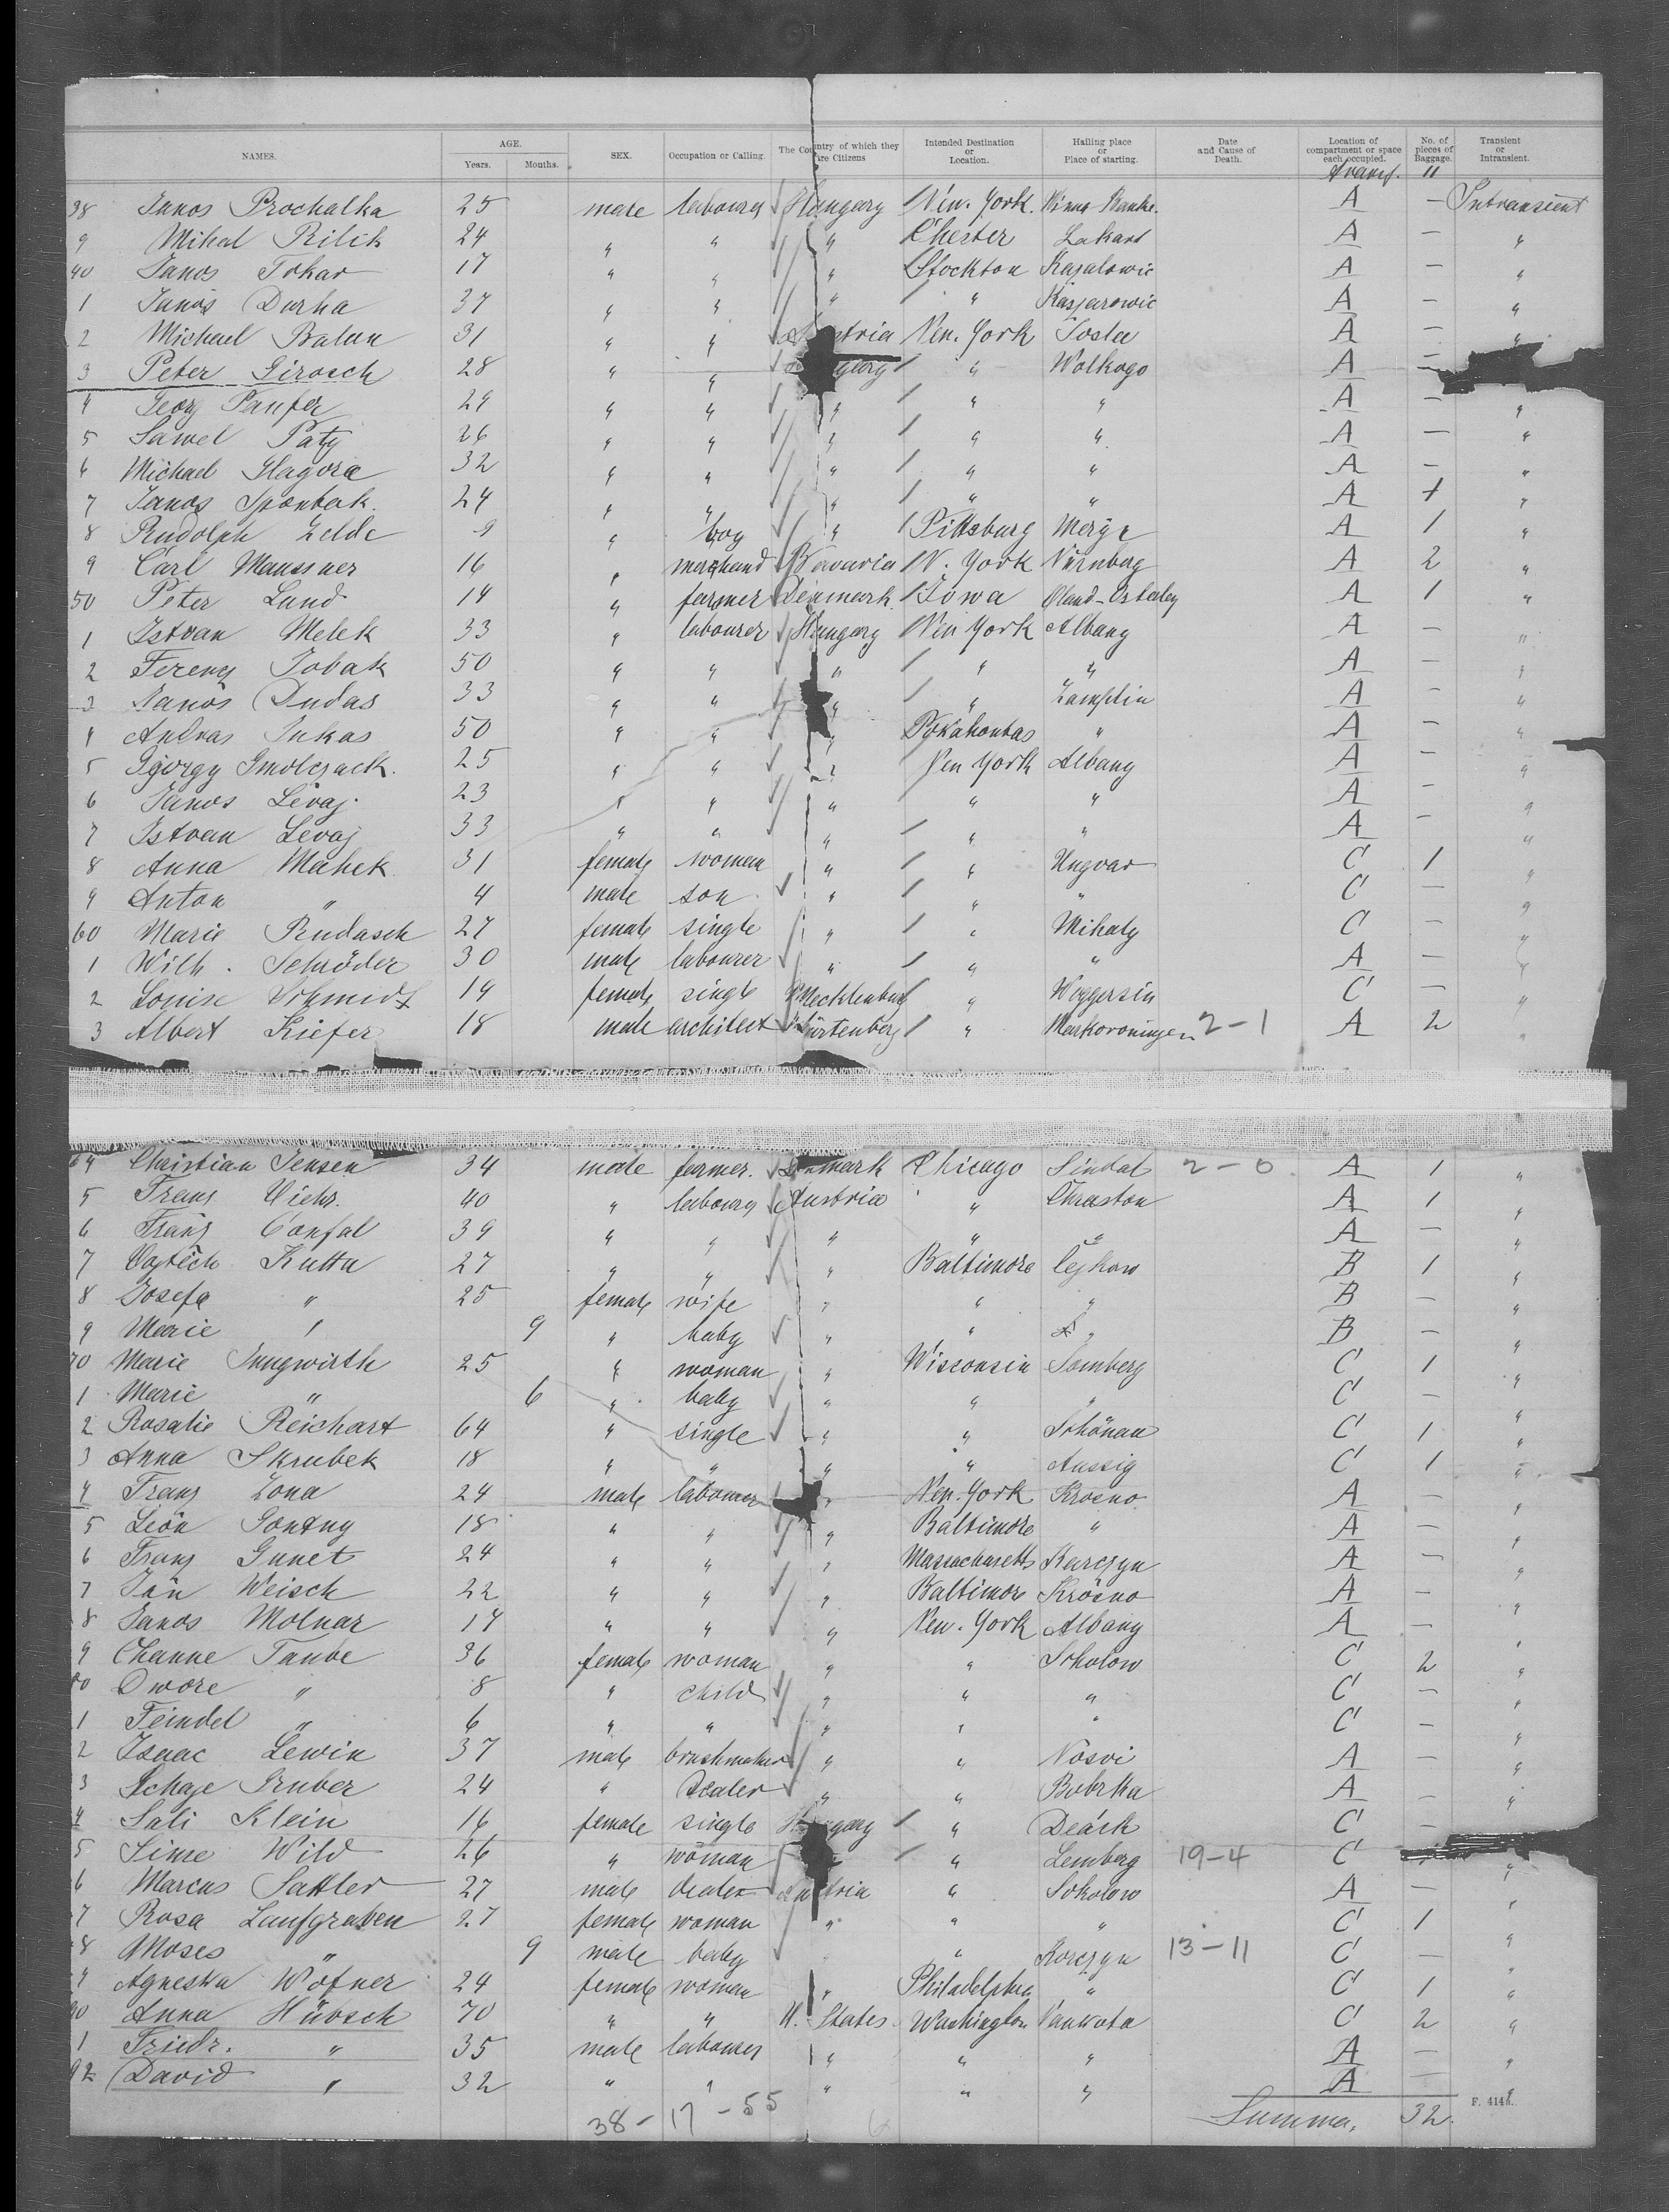 NAMES. AGE. Years. Months. SEX. Occupation or Calling. The Country of which they are Citizens Intended Destination or Location. Hailing place or Place of starting. Date and Cause of Death. Location of compartment or space each occupied. No. of pieces of Baggage. Transient or Intransient.
Transp. 11
38 Janos Prochalka 25 male labourer Hungary New. York. A — Intransient
9 Mihal Rilik 24 " " " Chester Lakart A — "
40 Janos Tokar 17 " " " Stockton Kasalowic A — "
1 Janos Durha 37 " " " " Kasparowic A — "
2 Michael Balan 31 " " Austria New. York Tosta A — "
3 Peter Girosch 28 " " Hungary " Wolkogo A —
4 Georg Panfer 29 " " " " " A — "
5 Samel Paty 26 " " " " " A — "
6 Michael Hagora 32 " " " " " A — "
7 Janos Sponbak. 24 " " " " " A 1 "
8 Rudolph Zelde 9 " boy " Pittsburg A 1 "
9 Carl Maussner 16 " merchand Bavaria N. York Nürnberg A 2 "
50 Peter Lund 19 " farmer Denmark Iowa Öland-Osterley A 1 "
1 Istvan Melek 33 " labourer Hungary New York Albany A — "
2 Ferenz Tobak 50 " " " " " A — "
3 Janos Dudas 33 " " " " Zamplin A — "
4 Andras Inkas 50 " " " Pokahontas " A — "
5 György Smolcsack. 25 " " " New York Albany A — "
6 Janos Levaj 23 " " " " " A — "
7 Istvan Levaj 33 " " " " " A — "
8 Anna Mahek 31 female woman " " Ungvar C 1 "
9 Anton " 4 male son " " " C — "
60 Marie Rudasch 27 female single " " Mihaly C — "
1 Wilh. Schröder 30 male labourer " " " A — "
2 Louise Schmidt 19 female single Mecklenburg " Woggersin C — "
3 Albert Kiefer 18 male architect Würtenberg " Markoroningen 2-1 A 2 "
64 Christian Jensen 34 male farmer. Denmark Chicago Sindal 2-0 A 1 "
5 Franz Vichs. 40 " labourer Austria " Chraston A 1 "
6 Franz Confal 39 " " " " " A — "
7 Vojtěch Kutta 27 " " " Baltimore Cejkow B 1 "
8 Josefa " 25 female wife " " " B — "
9 Marie " 9 " baby " " " B — "
70 Marie Jungwirth 25 " woman " Wisconsin Somberg C 1 "
1 Marie " 6 " baby " " " C — "
2 Rosalie Reichart 64 " single " " Schönau C 1 "
3 Anna Skrubek 18 " " " " Aussig C 1 "
4 Franz Zona 24 male labourer " New. York Krosno A — "
5 León Gontny 18 " " " Baltimore " A — "
6 Franz Gunet 24 " " " Massachusetts Karczyn A — "
7 Ján Weisch 22 " " " Baltimore Krósno A — "
8 Janos Molnar 17 " " " New. York Albany A — "
9 Channe Taube 36 female woman " " Sokolow C 2 "
80 Dwore " 8 " child " " " C — "
1 Feindel " 6 " " " " " C — "
2 Isaac Lewin 37 male brushmaker " " Nosvi A — "
3 Schaje Gruber 24 " Dealer " " Bobrka A — "
4 Sali Klein 16 female single Hungary " Deárk C — "
5 Sime Wild 26 " woman " " Lemberg 19-4 C "
6 Marcus Sattler 27 male dealer Austria " Sokolow A — "
7 Rosa Laufgraben 27 female woman " " " C 1 "
8 Moses " 9 male baby " " Korczyn 13-11 C — "
9 Agneska Wöfner 24 female woman " Philadelphia " C 1 "
90 Anna Hübsch 70 " " U. States Washington Vanwota C 2 "
1 Friedr. " 35 male labourer " " " A — "
92 David " 32 " " " " " A — "
38 - 17 - 55 6 Summa. 32. F. 414